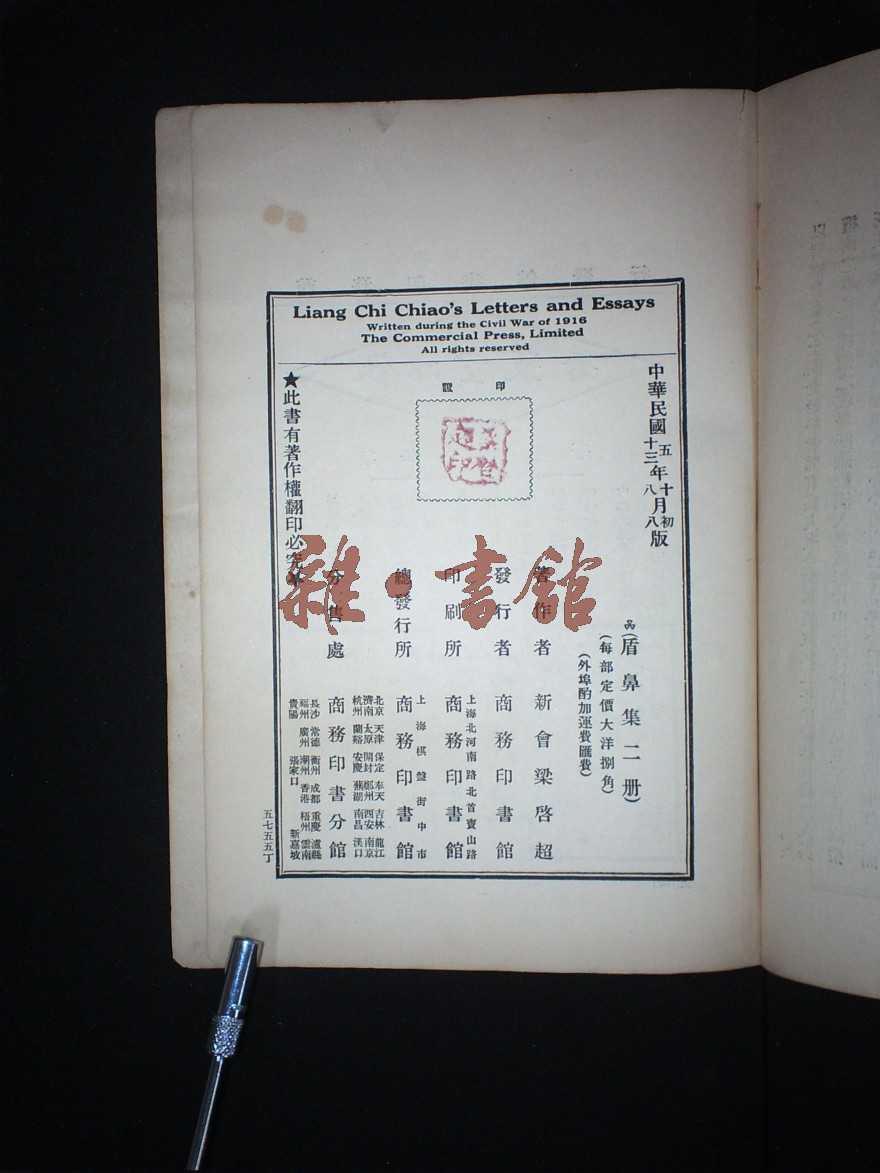 Liang Chi Chiao's Letters and Essays
Written during the Civil War of 1916
The Commercial Press, Limited
All rights reserved
印證
中華民國五年十月初版
十三年八月八版
(盾鼻集二册)
(每部定價大洋捌角)
(外埠酌加運費匯費)
著作者 新會梁啓超
發行者 商務印書館
印刷所 上海北河南路北首寶山路 商務印書館
總發行所 上海棋盤街中市 商務印書館
分售處 商務印書分館
北京 天津 保定 奉天 吉林 龍江
濟南 太原 開封 鄭州 西安 南京
杭州 蘭谿 安慶 蕪湖 南昌 漢口
長沙 常德 衡州 成都 重慶 瀘縣
福州 廣州 潮州 香港 梧州 雲南
貴陽 張家口 新嘉坡
★此書有著作權翻印必究★
五七五五丁
雜·書館